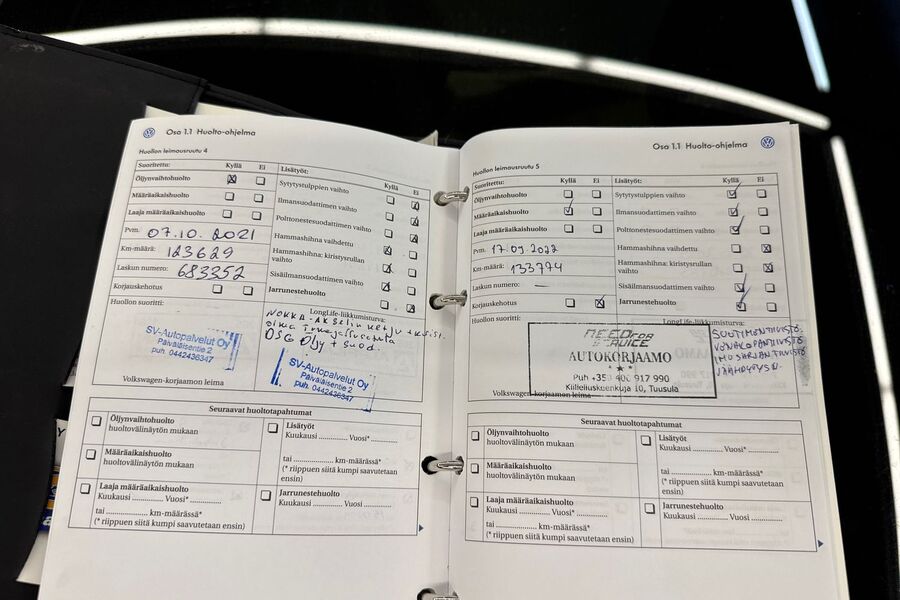 Osa 1.1 Huolto-ohjelma
Huollon leimausruutu 4
Suoritettu: Kyllä Ei Lisätyöt: Kyllä Ei
Öljynvaihtohuolto
Määräaikaishuolto
Laaja määräaikaishuolto
Pvm. 07.10.2021
Km-määrä: 123629
Laskun numero: 683352
Korjauskehotus
Huollon suoritti:
Sytytystulppien vaihto
Ilmansuodattimen vaihto
Polttonestesuodattimen vaihto
Hammashihna vaihdettu
Hammashihna: kiristysrullan
vaihto
Sisäilmansuodattimen vaihto
Jarrunestehuolto
LongLife-liikkumisturva:
NOKKA-AKSELIN KETJU +
DSG Öljy + suod.
SV-Autopalvelut Oy
Päiväläisentie 2
puh. 0442436347
SV-Autopalvelut Oy
Päiväläisentie 2
puh. 0442436347
Volkswagen-korjaamon leima
Seuraavat huoltotapahtumat
Öljynvaihtohuolto
huoltovälinäytön mukaan
Määräaikaishuolto
huoltovälinäytön mukaan
Laaja määräaikaishuolto
Kuukausi .............. Vuosi* ..........
tai .............. km-määrässä*
(* riippuen siitä kumpi saavutetaan ensin)
Lisätyöt
Kuukausi ............. Vuosi* ..........
tai .............. km-määrässä*
(* riippuen siitä kumpi saavutetaan
ensin)
Jarrunestehuolto
Kuukausi ............. Vuosi ..........
Osa 1.1 Huolto-ohjelma
Huollon leimausruutu 5
Suoritettu: Kyllä Ei Lisätyöt: Kyllä Ei
Öljynvaihtohuolto
Määräaikaishuolto
Laaja määräaikaishuolto
Pvm. 17.09.2022
Km-määrä: 133774
Laskun numero: —
Korjauskehotus
Huollon suoritti:
Sytytystulppien vaihto
Ilmansuodattimen vaihto
Polttonestesuodattimen vaihto
Hammashihna vaihdettu
Hammashihna: kiristysrullan
vaihto
Sisäilmansuodattimen vaihto
Jarrunestehuolto
LongLife-liikkumisturva:
AUTOKORJAAMO
Puh +358 400 917 990
Kiileliuskeenkuja 10, Tuusula
Volkswagen-korjaamon leima
Seuraavat huoltotapahtumat
Öljynvaihtohuolto
huoltovälinäytön mukaan
Määräaikaishuolto
huoltovälinäytön mukaan
Laaja määräaikaishuolto
Kuukausi .............. Vuosi* ..........
tai .............. km-määrässä*
(* riippuen siitä kumpi saavutetaan ensin)
Lisätyöt
Kuukausi ............. Vuosi* ..........
tai .............. km-määrässä*
(* riippuen siitä kumpi saavutetaan
ensin)
Jarrunestehuolto
Kuukausi ............. Vuosi ..........